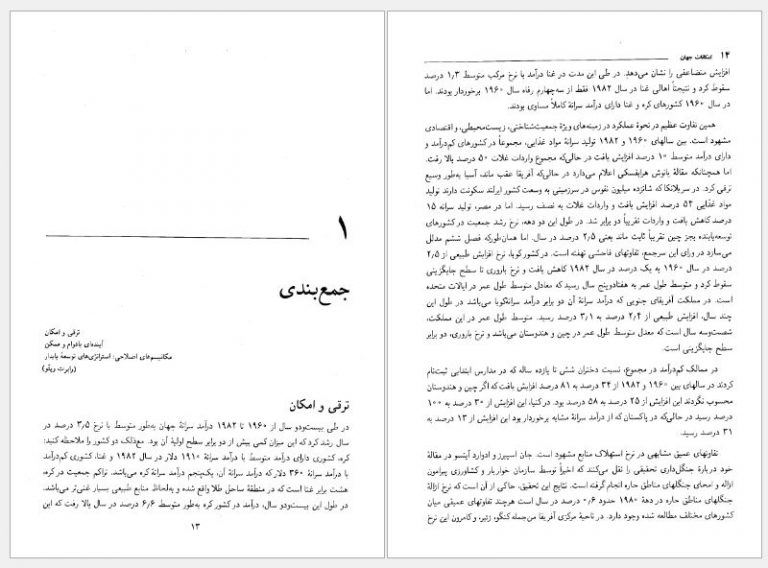 ۱
جمع‌بندی
ترقی و امکان
آینده‌ای بادوام و ممکن
مکانیسم‌های اصلاحی: استراتژی‌های توسعهٔ پایدار
(رابرت رپتو)
ترقی و امکان
در طی بیست‌ودو سال از ۱۹۶۰ تا ۱۹۸۲ درآمد سرانهٔ جهان به‌طور متوسط با نرخ ۳٫۵ درصد در
سال رشد کرد که این میزان کمی بیش از دو برابر سطح اولیهٔ آن بود. مع‌ذلک دو کشور را ملاحظه کنید:
کره، کشوری دارای درآمد متوسط با درآمد سرانهٔ ۱۹۱۰ دلار در سال ۱۹۸۲ و غنا، کشوری کم‌درآمد
با سرانهٔ ۳۶۰ دلار که درآمد سرانهٔ آن، یک‌پنجم درآمد سرانهٔ کره می‌باشد. تراکم جمعیت در کره،
هشت برابر غنا است که در منطقهٔ ساحل طلا واقع شده و به‌لحاظ منابع طبیعی بسیار غنی‌تر می‌باشد.
در طول این بیست‌ودو سال، درآمد در کشور کره به‌طور متوسط ۶٫۶ درصد در سال بالا رفت که این
۱۳
۱۴ امکانات جهان
افزایش متضاعفی را نشان می‌دهد. در طی این مدت در غنا درآمد با نرخ مرکب متوسط ۱٫۳ درصد
سقوط کرد و نتیجتاً اهالی غنا در سال ۱۹۸۲ فقط از سه‌چهارم رفاه سال ۱۹۶۰ برخوردار بودند. اما
در سال ۱۹۶۰ کشورهای کره و غنا دارای درآمد سرانهٔ کاملاً مساوی بودند.
همین تفاوت عظیم در نحوهٔ عملکرد در زمینه‌های ویژهٔ جمعیت‌شناختی، زیست‌محیطی، و اقتصادی
مشهود است. بین سالهای ۱۹۶۰ و ۱۹۸۲ تولید سرانهٔ مواد غذایی، مجموعاً در کشورهای کم‌درآمد و
دارای درآمد متوسط ۱۰ درصد افزایش یافت در حالی‌که مجموع واردات غلات ۵۰ درصد بالا رفت.
اما همچنانکه مقالهٔ بانوش هرایفسکی اعلام می‌دارد در حالی‌که آفریقا عقب ماند، آسیا به‌طور وسیع
ترقی کرد. در سریلانکا که شانزده میلیون نفوس در سرزمینی به وسعت کشور ایرلند سکونت دارند تولید
مواد غذایی ۵۴ درصد افزایش یافت و واردات غلات به نصف رسید. اما در مصر، تولید سرانه ۱۵
درصد کاهش یافت و واردات تقریباً دو برابر شد. در طول این دو دهه، نرخ رشد جمعیت در کشورهای
توسعه‌یابنده بجز چین تقریباً ثابت ماند یعنی ۲٫۵ درصد در سال. اما همان‌طورکه فصل ششم مدلل
می‌سازد در ورای این سرجمع، تفاوتهای فاحشی نهفته است. در کشور کوبا، نرخ افزایش طبیعی از ۲٫۵
درصد در سال ۱۹۶۰ به یک درصد در سال ۱۹۸۲ کاهش یافت و نرخ باروری تا سطح جایگزینی
سقوط کرد و متوسط طول عمر به هفتادوپنج سال رسید که معادل متوسط طول عمر در ایالات متحده
است. در مملکت آفریقای جنوبی که درآمد سرانهٔ آن دو برابر درآمد سرانهٔ‌کوبا می‌باشد در طول این
چند سال، افزایش طبیعی از ۲٫۴ درصد به ۳٫۱ درصد رسید. متوسط طول عمر در این مملکت،
شصت‌وسه سال است که معدل متوسط طول عمر در چین و هندوستان می‌باشد و نرخ باروری، دو برابر
سطح جایگزینی است.
در ممالک کم‌درآمد در مجموع، نسبت دختران شش تا یازده ساله که در مدارس ابتدایی ثبت‌نام
کردند در سالهای بین ۱۹۶۰ و ۱۹۸۲ از ۳۴ درصد به ۸۱ درصد افزایش یافت که اگر چین و هندوستان
محسوب نگردند این افزایش از ۲۵ درصد به ۵۸ درصد بود. در کنیا، این افزایش از ۳۰ درصد به ۱۰۰
درصد رسید در حالی‌که در پاکستان که از درآمد سرانهٔ مشابه برخوردار بود این افزایش از ۱۳ درصد به
۳۱ درصد رسید.
تفاوتهای عمیق مشابهی در نرخ استهلاک منابع مشهود است. جان اسپیرز و ادوارد آینسو در مقالهٔ
خود دربارهٔ جنگل‌داری تحقیقی را نقل می‌کنند که اخیراً توسط سازمان خواربار و کشاورزی پیرامون
ازاله و امحای جنگلهای مناطق حاره انجام گرفته است. نتایج این تحقیق، حاکی از آن است که نرخ ازالهٔ
جنگلهای مناطق حاره در دههٔ ۱۹۸۰ حدود ۰٫۶ درصد در سال است هرچند تفاوتهای عمیقی میان
کشورهای مختلف مطالعه شده وجود دارد. در ناحیهٔ مرکزی آفریقا من‌جمله کنگو، زئیر، و کامرون این نرخ